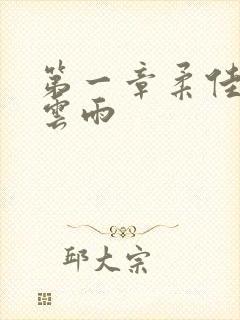 第一章柔佳
雲雨
邱大宗